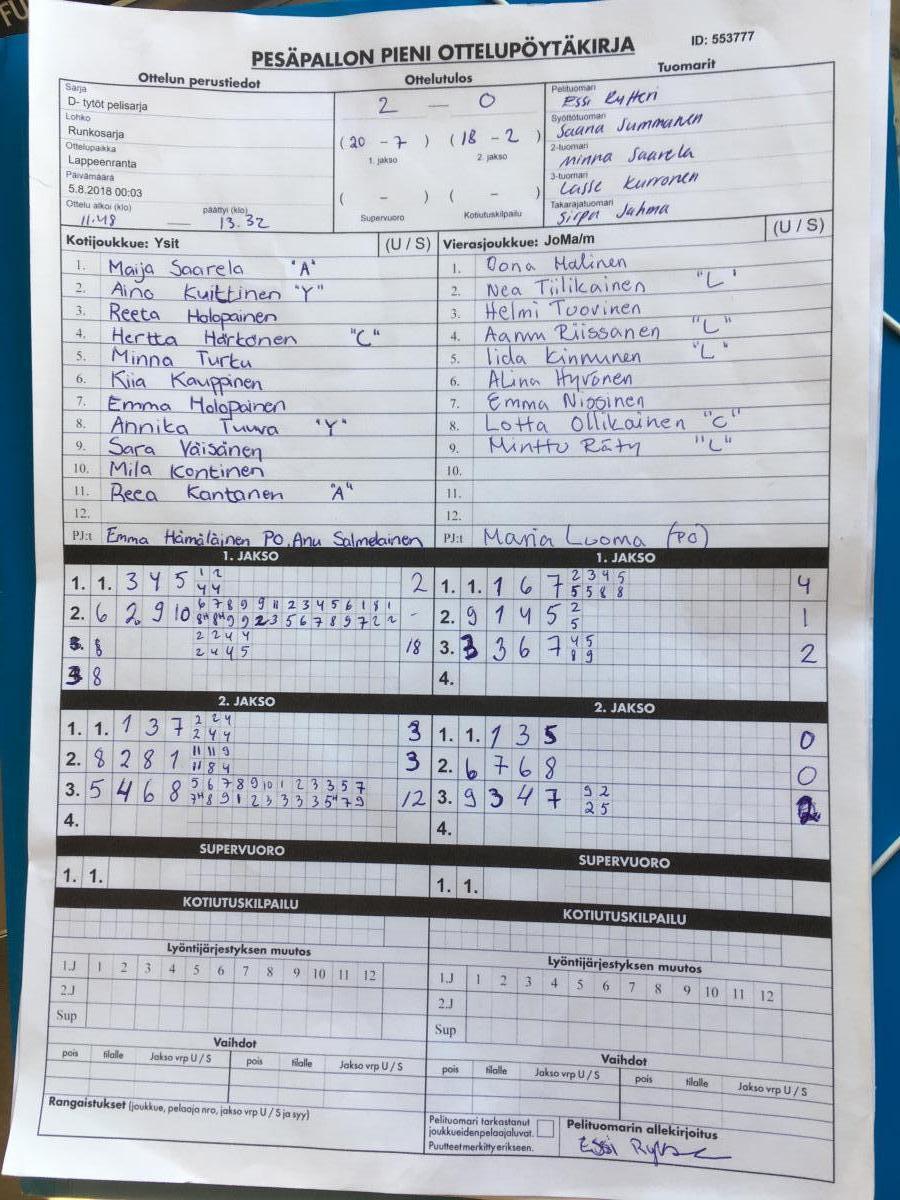 PESÄPALLON PIENI OTTELUPÖYTÄKIRJA
ID: 553777
Ottelun perustiedot
Ottelutulos
Tuomarit
Sarja
D- tytöt pelisarja
Lohko
Runkosarja
Ottelupaikka
Lappeenranta
Päivämäärä
5.8.2018 00:03
Ottelu alkoi (klo) päättyi (klo)
11.48 — 13.32
2 — 0
(20 - 7) (18 - 2)
1. jakso 2. jakso
( - ) ( - )
Supervuoro Kotiutuskilpailu
Pelituomari
Essi Rytteri
Syöttötuomari
Saana Summanen
2-tuomari
Minna Saarela
3-tuomari
Lasse Kurronen
Takarajatuomari
Sirpa Jahma
Kotijoukkue: Ysit (U / S)
1. Maija Saarela "A"
2. Aino Kuittinen "Y"
3. Reeta Holopainen
4. Hertta Härkönen "C"
5. Minna Turku
6. Kiia Kauppinen
7. Emma Holopainen
8. Annika Tuuva "Y"
9. Sara Väisänen
10. Mila Kontinen
11. Reea Kantanen "A"
12.
PJ:t Emma Hämäläinen PO, Anu Salmelainen
Vierasjoukkue: JoMa/m (U / S)
1. Oona Malinen
2. Nea Tiilikainen "L"
3. Helmi Tuovinen
4. Aamu Riissanen "L"
5. Iida Kinnunen "L"
6. Alina Hyvönen
7. Emma Nissinen
8. Lotta Ollikainen "C"
9. Minttu Räty "L"
10.
11.
12.
PJ:t Maria Luoma (PO)
1. JAKSO
1. 1. 3 4 5 1 2 2
4 4
2. 6 2 9 10 6 7 8 9 9 11 2 3 4 5 6 1 8 1 -
8H 8H 9 9 2 3 5 6 7 8 9 7 2 2
3. 8 2 2 4 4 18
2 4 4 5
3 8
1. JAKSO
1. 1. 1 6 7 2 3 4 5 4
5 5 8 8
2. 9 1 4 5 2 1
5
3. 3 3 6 7 4 5 2
8 9
4.
2. JAKSO
1. 1. 1 3 7 2 2 4 3
2 4 4
2. 8 2 8 1 11 11 9 3
11 8 4
3. 5 4 6 8 5 6 7 8 9 10 1 2 3 3 5 7 12
7H 8 9 1 2 3 3 3 3 5H 7 9
4.
2. JAKSO
1. 1. 1 3 5 0
2. 6 7 6 8 0
3. 9 3 4 7 9 2 2
2 5
4.
SUPERVUORO
1. 1.
SUPERVUORO
1. 1.
KOTIUTUSKILPAILU
KOTIUTUSKILPAILU
Lyöntijärjestyksen muutos
1.J 1 2 3 4 5 6 7 8 9 10 11 12
2.J
Sup
Lyöntijärjestyksen muutos
1.J 1 2 3 4 5 6 7 8 9 10 11 12
2.J
Sup
Vaihdot
pois tilalle Jakso vrp U / S pois tilalle Jakso vrp U / S
Vaihdot
pois tilalle Jakso vrp U / S pois tilalle Jakso vrp U / S
Rangaistukset (joukkue, pelaaja nro, jakso vrp U / S ja syy)
Pelituomari tarkastanut
joukkueidenpelaajaluvat.
Puutteet merkitty erikseen.
Pelituomarin allekirjoitus
Essi